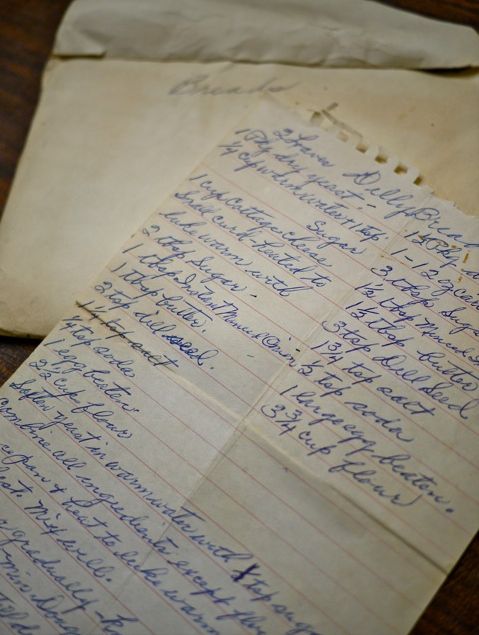 Breads
2 Loaves Dilly Bread
1 Pkg dry yeast -
1/4 cup warm water & 1 tsp. Sugar
1 cup Cottage cheese
heated to
lukewarm with
2 tbsp Sugar -
1 tbsp Instant Minced Onion
1 tbsp butter.
2 tsp dill seed.
1 tsp salt
1/4 tsp soda
1 egg beaten.
2 1/2 cup flour
1 - 12
3 tbsp Sugar
1 1/2 tbsp Minced
1 1/2 tbsp butter
3 tsp Dill Seed
1 3/4 tsp salt
tsp soda
1 large egg beaten.
3 3/4 cup flour
Soften yeast in warm water with 1 tsp sugar
Combine all ingredients except flour
pan & heat to luke warm
Mix well.
gradually